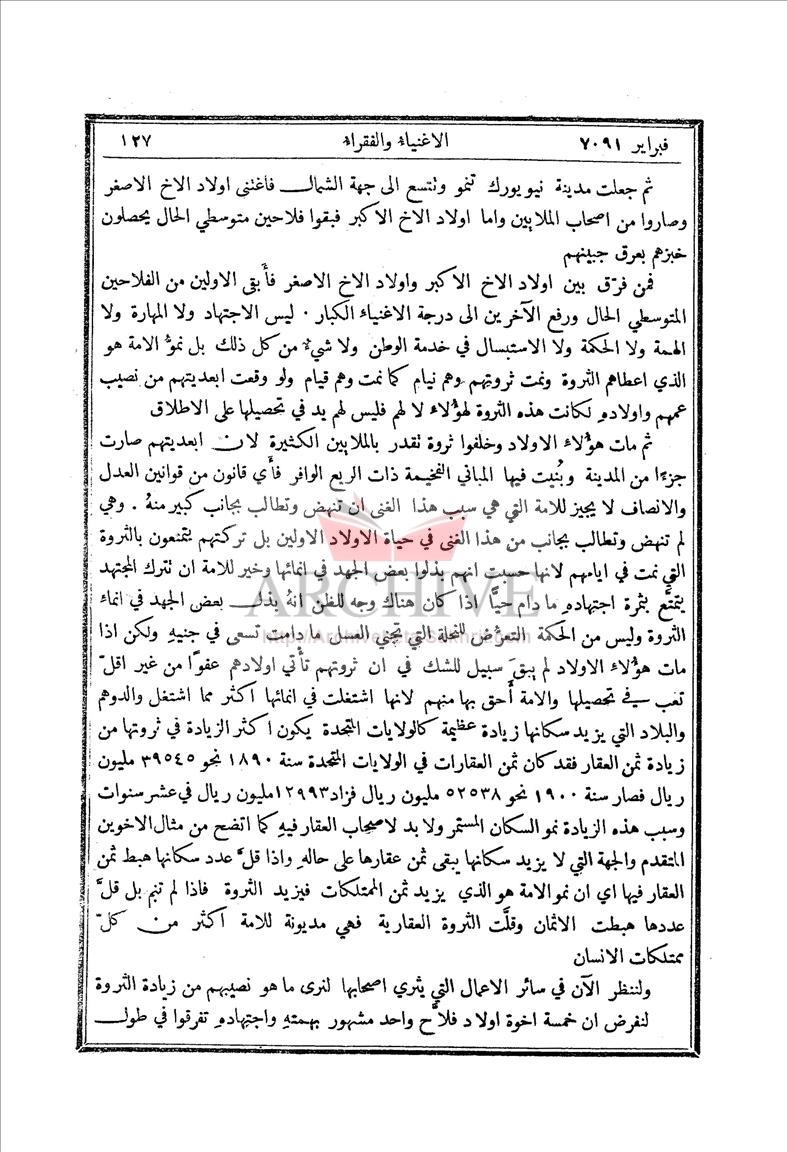 فبراير ٧٠٩١ الاغنياء والفقراء ١٢٧
ثم جعلت مدينة نيويورك تنمو وتتسع الى جهة الشمال فاغتنى اولاد الاخ الاصغر
وصاروا من اصحاب الملايين واما اولاد الاخ الاكبر فبقوا فلاحين متوسطي الحال يحصلون
خبزهم بعرق جبينهم
فمن فرّق بين اولاد الاخ الاكبر واولاد الاخ الاصغر فأَبقى الاولين من الفلاحين
المتوسطي الحال ورفع الآخرين الى درجة الاغنياء الكبار . ليس الاجتهاد ولا المهارة ولا
الهمة ولا الحكمة ولا الاستبسال في خدمة الوطن ولا شيءٌ من كل ذلك بل نموُّ الامة هو
الذي اعطاهم الثروة ونمت ثروتهم وهم نيام كما نمت وهم قيام ولو وقعت ابعديتهم من نصيب
عمهم واولادهِ لكانت هذه الثروة لهؤلاء لا لهم فليس لهم يد في تحصيلها على الاطلاق
ثم مات هؤلاء الاولاد وخلفوا ثروة تقدر بالملايين الكثيرة لان ابعديتهم صارت
جزءًا من المدينة وبُنيت فيها المباني الفخيمة ذات الريع الوافر فأَي قانون من قوانين العدل
والانصاف لا يجيز للامة التي هي سبب هذا الغنى ان تنهض وتطالب بجانب كبير منهُ . وهي
لم تنهض وتطالب بجانب من هذا الغنى في حياة الاولاد الاولين بل تركتهم يتمتعون بالثروة
التي نمت في ايامهم لانها حسبت انهم بذلوا بعض الجهد في انمائها وخير للامة ان تترك المجتهد
يتمتَّع بثمرة اجتهادهِ ما دام حيًّا اذا كان هناك وجه للظن انهُ بذل بعض الجهد في انماء
الثروة وليس من الحكمة التعرُّض للنحلة التي تجني العسل ما دامت تسعى في جنيهِ ولكن اذا
مات هؤلاء الاولاد لم يبقَ سبيل للشك في ان ثروتهم تأتي اولادهم عفوًا من غير اقلّ
تعب في تحصيلها والامة أَحق بها منهم لانها اشتغلت في انمائها اكثر مما اشتغل والدوهم
والبلاد التي يزيد سكانها زيادة عظيمة كالولايات المتحدة يكون اكثر الزيادة في ثروتها من
زيادة ثمن العقار فقد كان ثمن العقارات في الولايات المتحدة سنة ١٨٩٠ نحو ٣٩٥٤٥ مليون
ريال فصار سنة ١٩٠٠ نحو ٥٢٥٣٨ مليون ريال فزاد ١٢٩٩٣ مليون ريال في عشر سنوات
وسبب هذه الزيادة نمو السكان المستمر ولا بد لاصحاب العقار فيهِ كما اتضح من مثال الاخوين
المتقدم والجهة التي لا يزيد سكانها يبقى ثمن عقارها على حالهِ واذا قلَّ عدد سكانها هبط ثمن
العقار فيها اي ان نمو الامة هو الذي يزيد ثمن الممتلكات فيزيد الثروة فاذا لم تنمُ بل قلَّ
عددها هبطت الاثمان وقلَّت الثروة العقارية فهي مديونة للامة اكثر من كلّ
ممتلكات الانسان
ولننظر الآن في سائر الاعمال التي يثري اصحابها لنرى ما هو نصيبهم من زيادة الثروة
لنفرض ان خمسة اخوة اولاد فلاَّح واحد مشهور بهمتهِ واجتهادهِ تفرقوا في طول
ARCHIVE